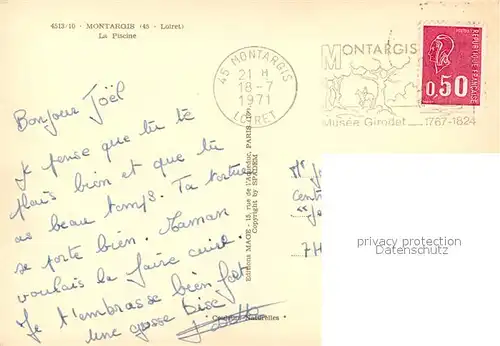 4513/10 - MONTARGIS (45 - Loiret)
La Piscine
45 MONTARGIS
21 H
18-7
1971
LOIRET
MONTARGIS
Musée Girodet 1767-1824
RÉPUBLIQUE FRANÇAISE
0,50
Bonjour Joël
Je pense que tu te
plais bien et que tu
as beau temps. Ta tortue
se porte bien. Maman
voulais la faire cuire.
Je t'embrasse bien fort
Une grosse bise
Editions MAGE - 15, rue de l'Aqueduc, PARIS-10e
Copyright by SPADEM
Couleurs Naturelles
privacy protection
Datenschutz